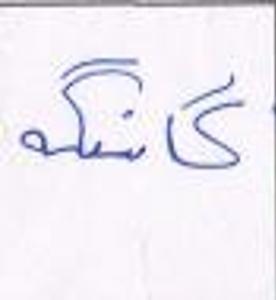 گانگہ